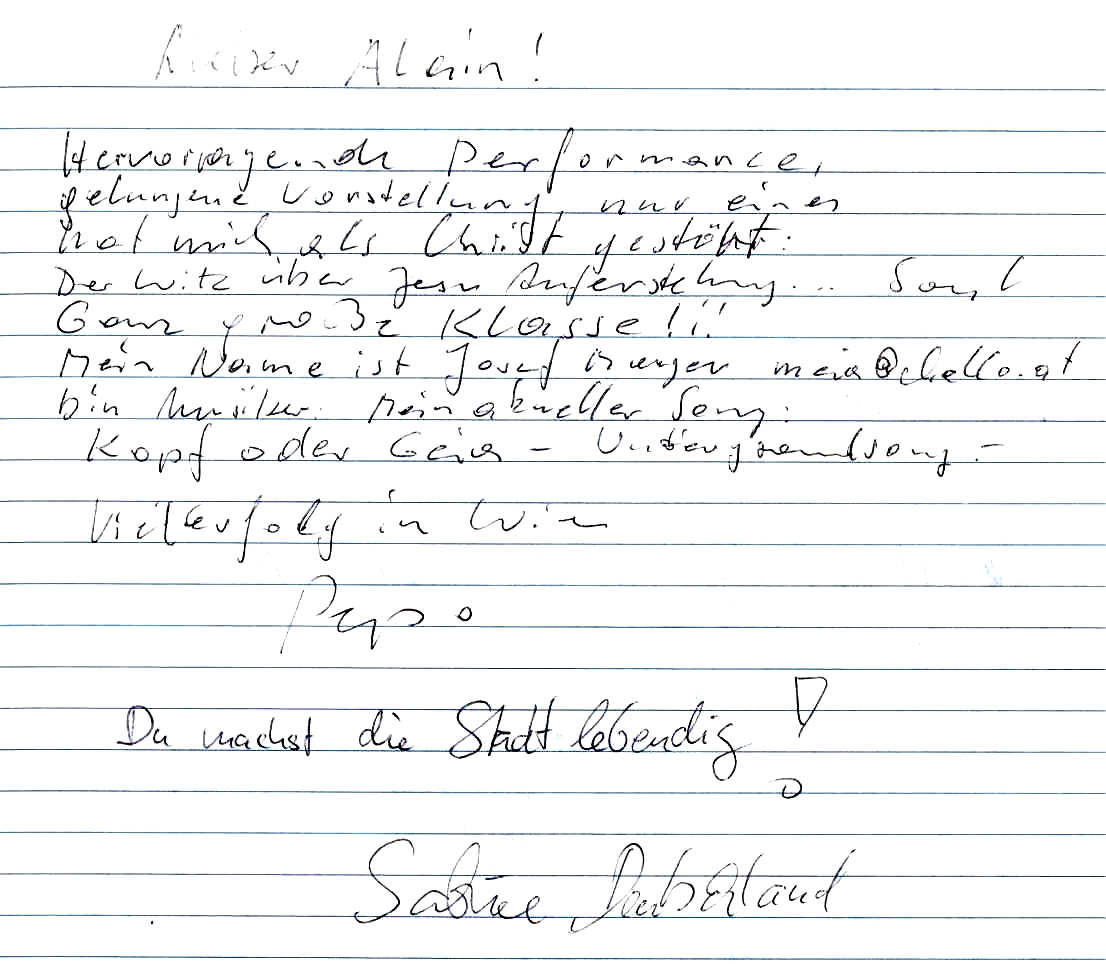 Lieber Alain!
Hervorragende Performance,
gelungene Vorstellung, nur eines
hat mich als Christ gestört:
Der Witz über Jesu Auferstehung... Sonst
Ganz große Klasse!!!
Mein Name ist Josef @chello.at
bin Musiker. Mein aktueller Song:
Kopf oder Geier - Untergrundsong -
Viel Erfolg in Wien
Du machst die Stadt lebendig!
Sabine Deutschland